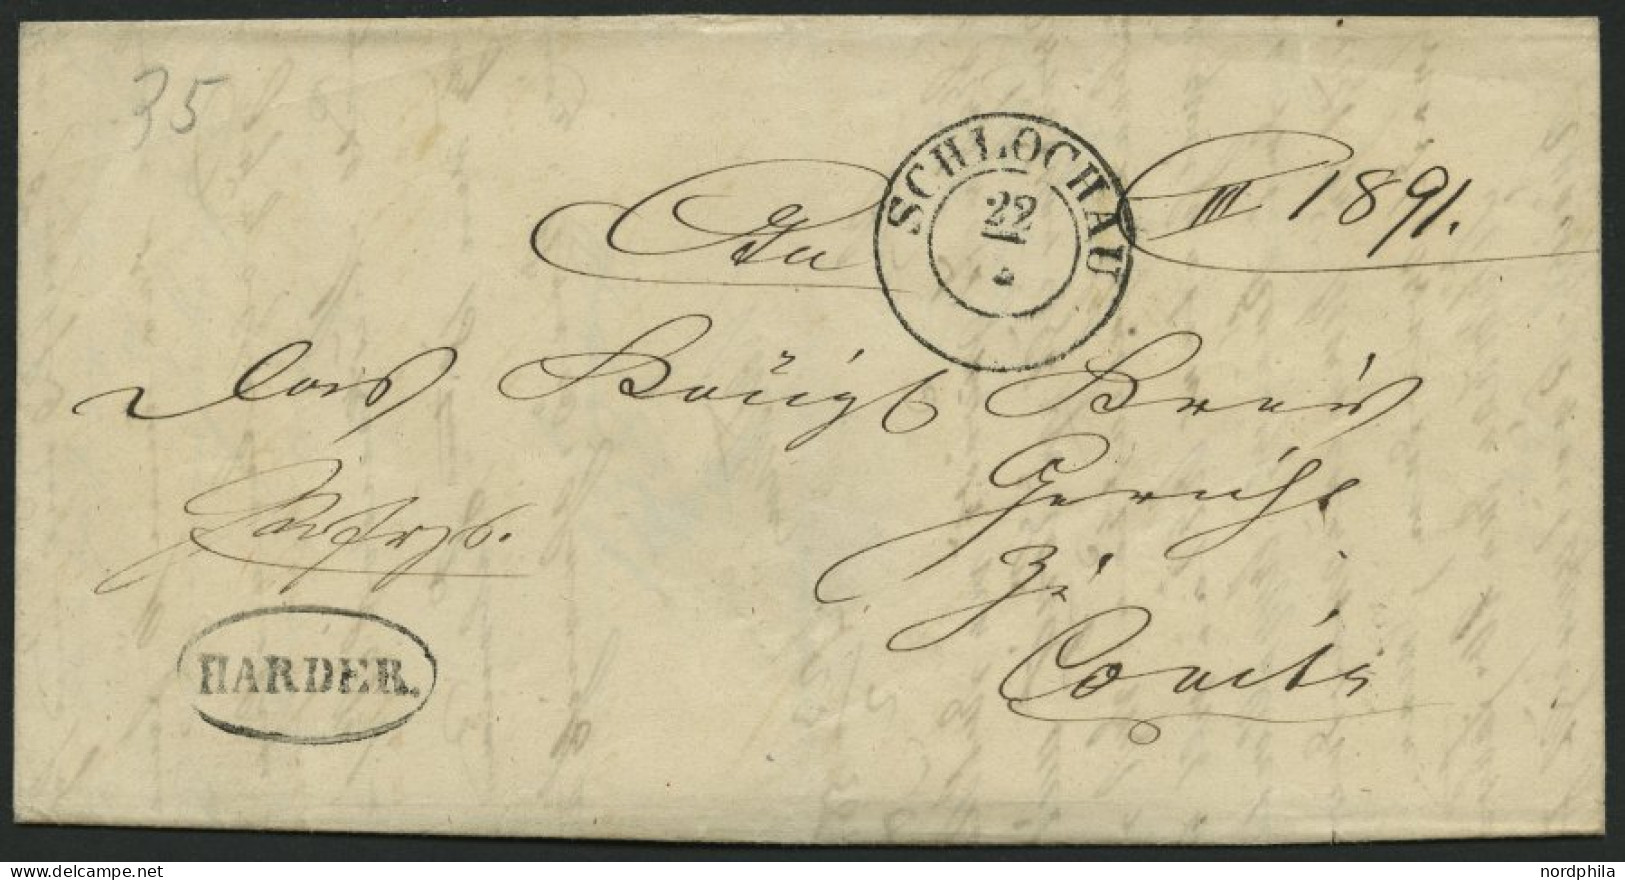 35
SCHLOCHAU
22
An III 1891.
das Königl Kreis
Gericht
zu
Conitz
HARDER.
nordphila